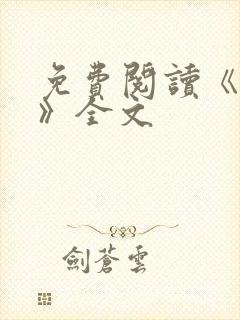 免費閱讀《
》全文
劍蒼雲